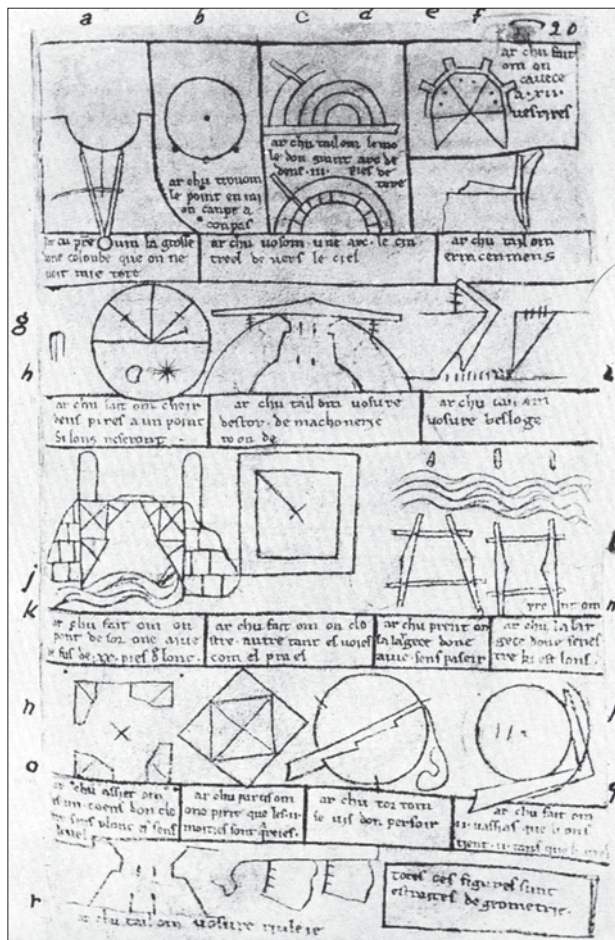 a b c d e f
20
ar chu fait
om on
cavece
a .xii.
vesrires
ar chu tail om le mo
le don grant arc de
dens .iii. pies de
tere
ar chu trovom
le point en mi
on canpe a
conpas
ar chu prent om la grosse
done colonbe que on ne
voit mie tote
ar chu vosom une arc le cin
treel devers le ciel
ar chu tail om
erracenmens
g
h
i
ar chu fait om cheir
deus pires a un point
si lons ne seront
ar chu tail om vosure
destor de machonerie
roonde
ar chu tail om
vosure besloge
j
k
l
m
ar chu fait om on
pont desor one aive
de fus de .xx. pies de lonc
ar chu fait om on clo
stre autre tant es voies
com el prael
ar chu prent om
la largece done
aive sens paseir
ar chu prent om
la lar
gece done fenes
tre ki est lons
n
o
ar chu assiet om
les .iiii. coens don clo
stre sens plonc et sens
livel
ar chu partis om
one pirre que les .ii.
moities sont quareies
ar chu tor tom
le vis don persoir
ar chu fait om
.ii. vassias que li ons
tient .ii. tans que li atres
r
ar chu tail om vosure riuleie
totes ces figures sunt
estraites de geometrie